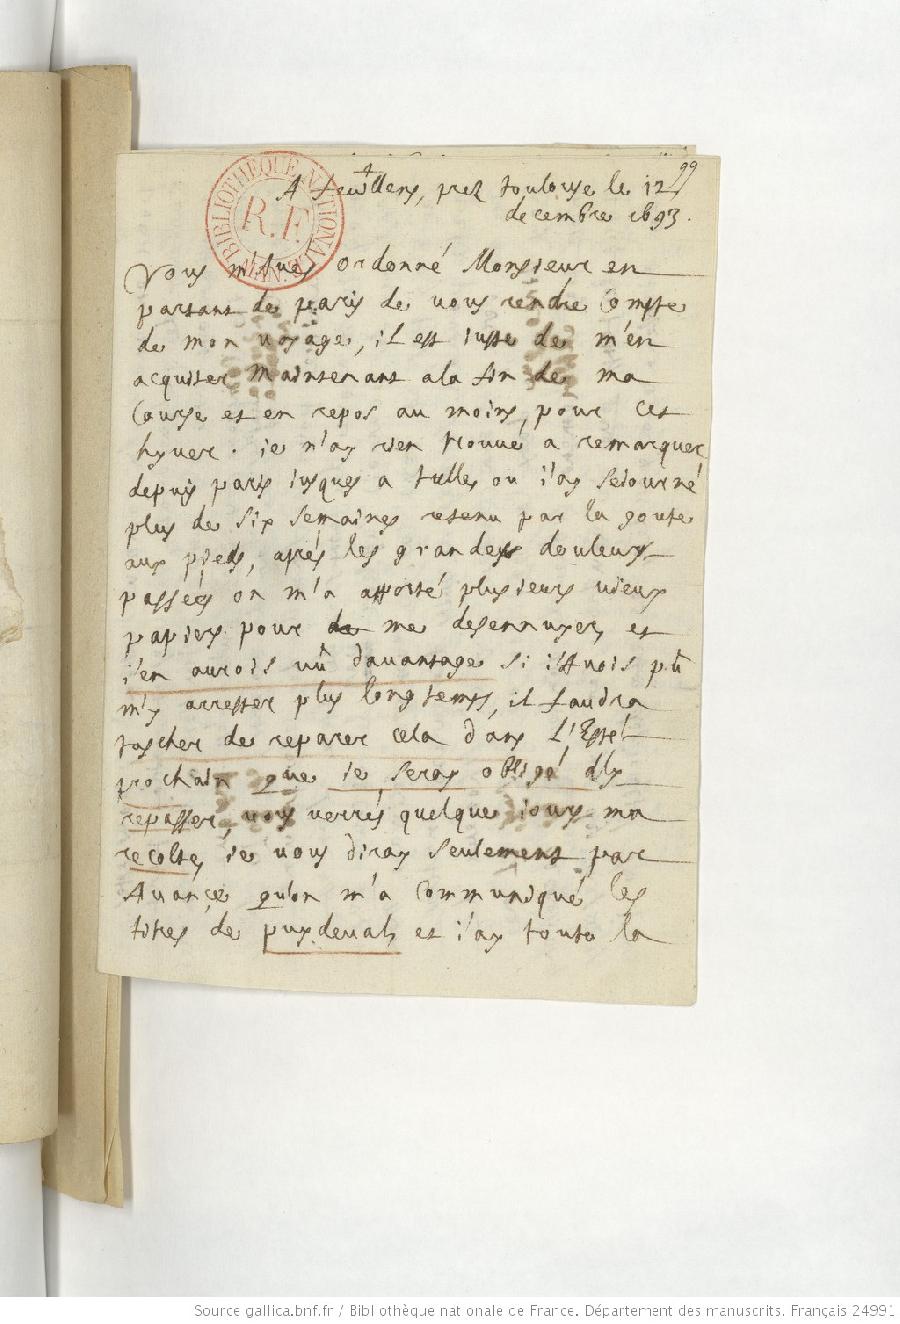 99
A feuillens, prez toulouse le 12
decembre 1693.
BIBLIOTHEQUE NATIONALE MAN.
R.F.
Vous m'aues ordonné Monsieur en
partant de paris de vous rendre Compte
de mon voyage, il est iuste de m'en
acquiter Maintenant a la fin de ma
Course et en repos au moins, pour cet
hyuer. ie n'ay rien trouué a remarquer
depuis paris iusques a tulles ou i'ay seiourné
plus de six semaines retenu par la goute
aux pieds, aprés les grandes douleurs
passées on m'a apporté plusieurs vieux
papiers pour de me desennuyer, et
i'en aurois vû dauantage si i'auois pû
m'y arrester plus long temps, il faudra
tascher de reparer cela dans L'Esté
prochain que ie seray obligé d'y
repasser, vous verrés quelque iours ma
recolte, ie vous diray seulement par
Auançe qu'on m'a Communiqué les
titres de puydeual, et i'ay toute la
Source gallica.bnf.fr / Bibliothèque nationale de France. Département des manuscrits. Français 24991